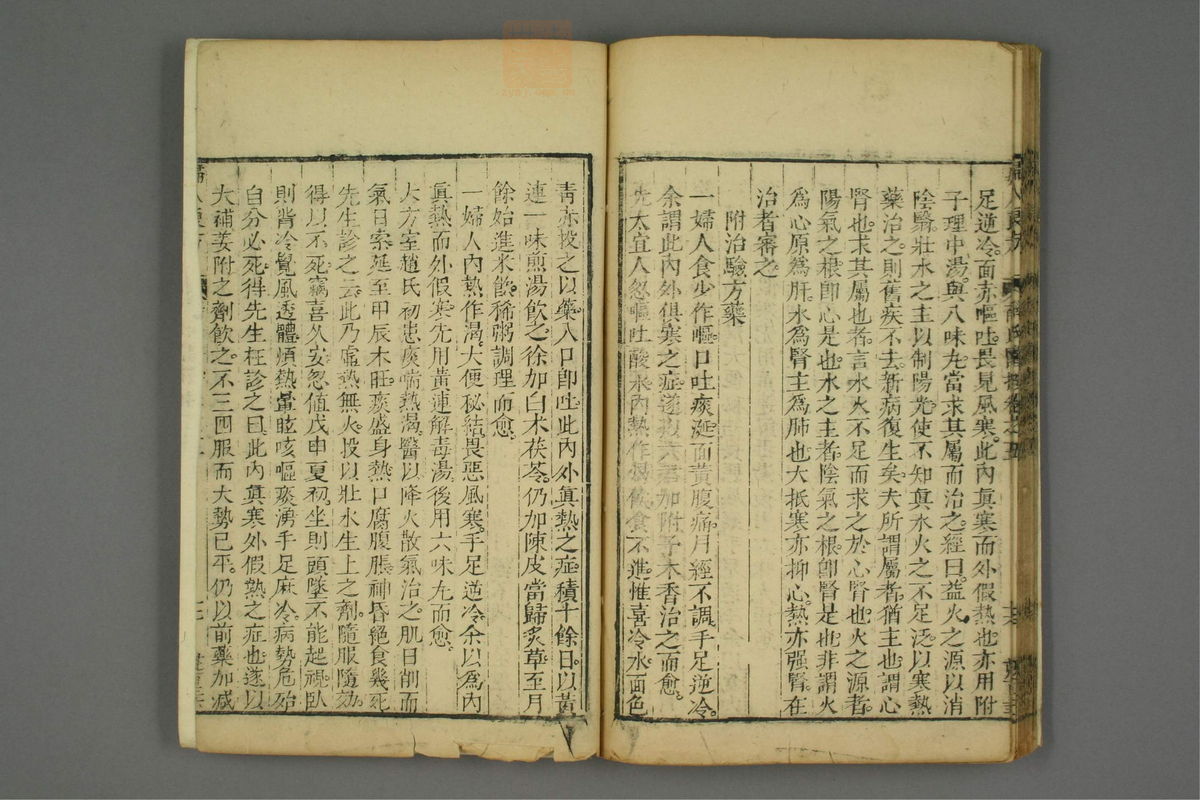 足逆冷面赤嘔吐畏見風寒此內眞寒而外假熱也亦用附
子理中湯與八味丸當求其屬而治之經曰益火之源以消
陰翳壯水之主以制陽光使不知眞水火之不足泛以寒熱
藥治之則舊疾不去新病復生矣夫所謂屬者猶主也謂心
腎也求其屬也者言水火不足而求之於心腎也火之源者
陽氣之根卽心是也水之主者陰氣之根卽腎是也非謂火
爲心原爲肝水爲腎主爲肺也大抵寒亦抑心熱亦强腎在
治者審之
附治驗方藥
一婦人食少作嘔口吐痰涎面黃腹痛月經不調手足逆冷
余謂此內外俱寒之症遂以六君加附子木香治之而愈
先太宜人忽嘔吐酸水內熱作渴飲食不進惟喜冷水面色
青赤投之以藥入口卽吐此內外眞熱之症積十餘日以黃
連一味煎湯飲之徐加白朮茯苓仍加陳皮當歸炙草至月
餘始進米飲稀粥調理而愈
一婦人內熱作渴大便秘結畏惡風寒手足逆冷余以爲內
眞熱而外假寒先用黃連解毒湯後用六味丸而愈
大方室趙氏初患痰喘熱渴醫以降火散氣治之肌日削而
氣日索延至甲辰木旺痰盛身熱口腐腹脹神昏絕食幾死
先生診之云此乃虛熱無火投以壯水生土之劑隨服隨効
得以不死竊喜久安忽值戊申夏初坐則頭墜不能起視臥
則背冷覺風透體煩熱暈眩咳嘔痰湧手足麻冷病勢危殆
自分必死得先生枉診之曰此內眞寒外假熱之症也遂以
大補姜附之劑飲之不三四服而大勢已平仍以前藥加減